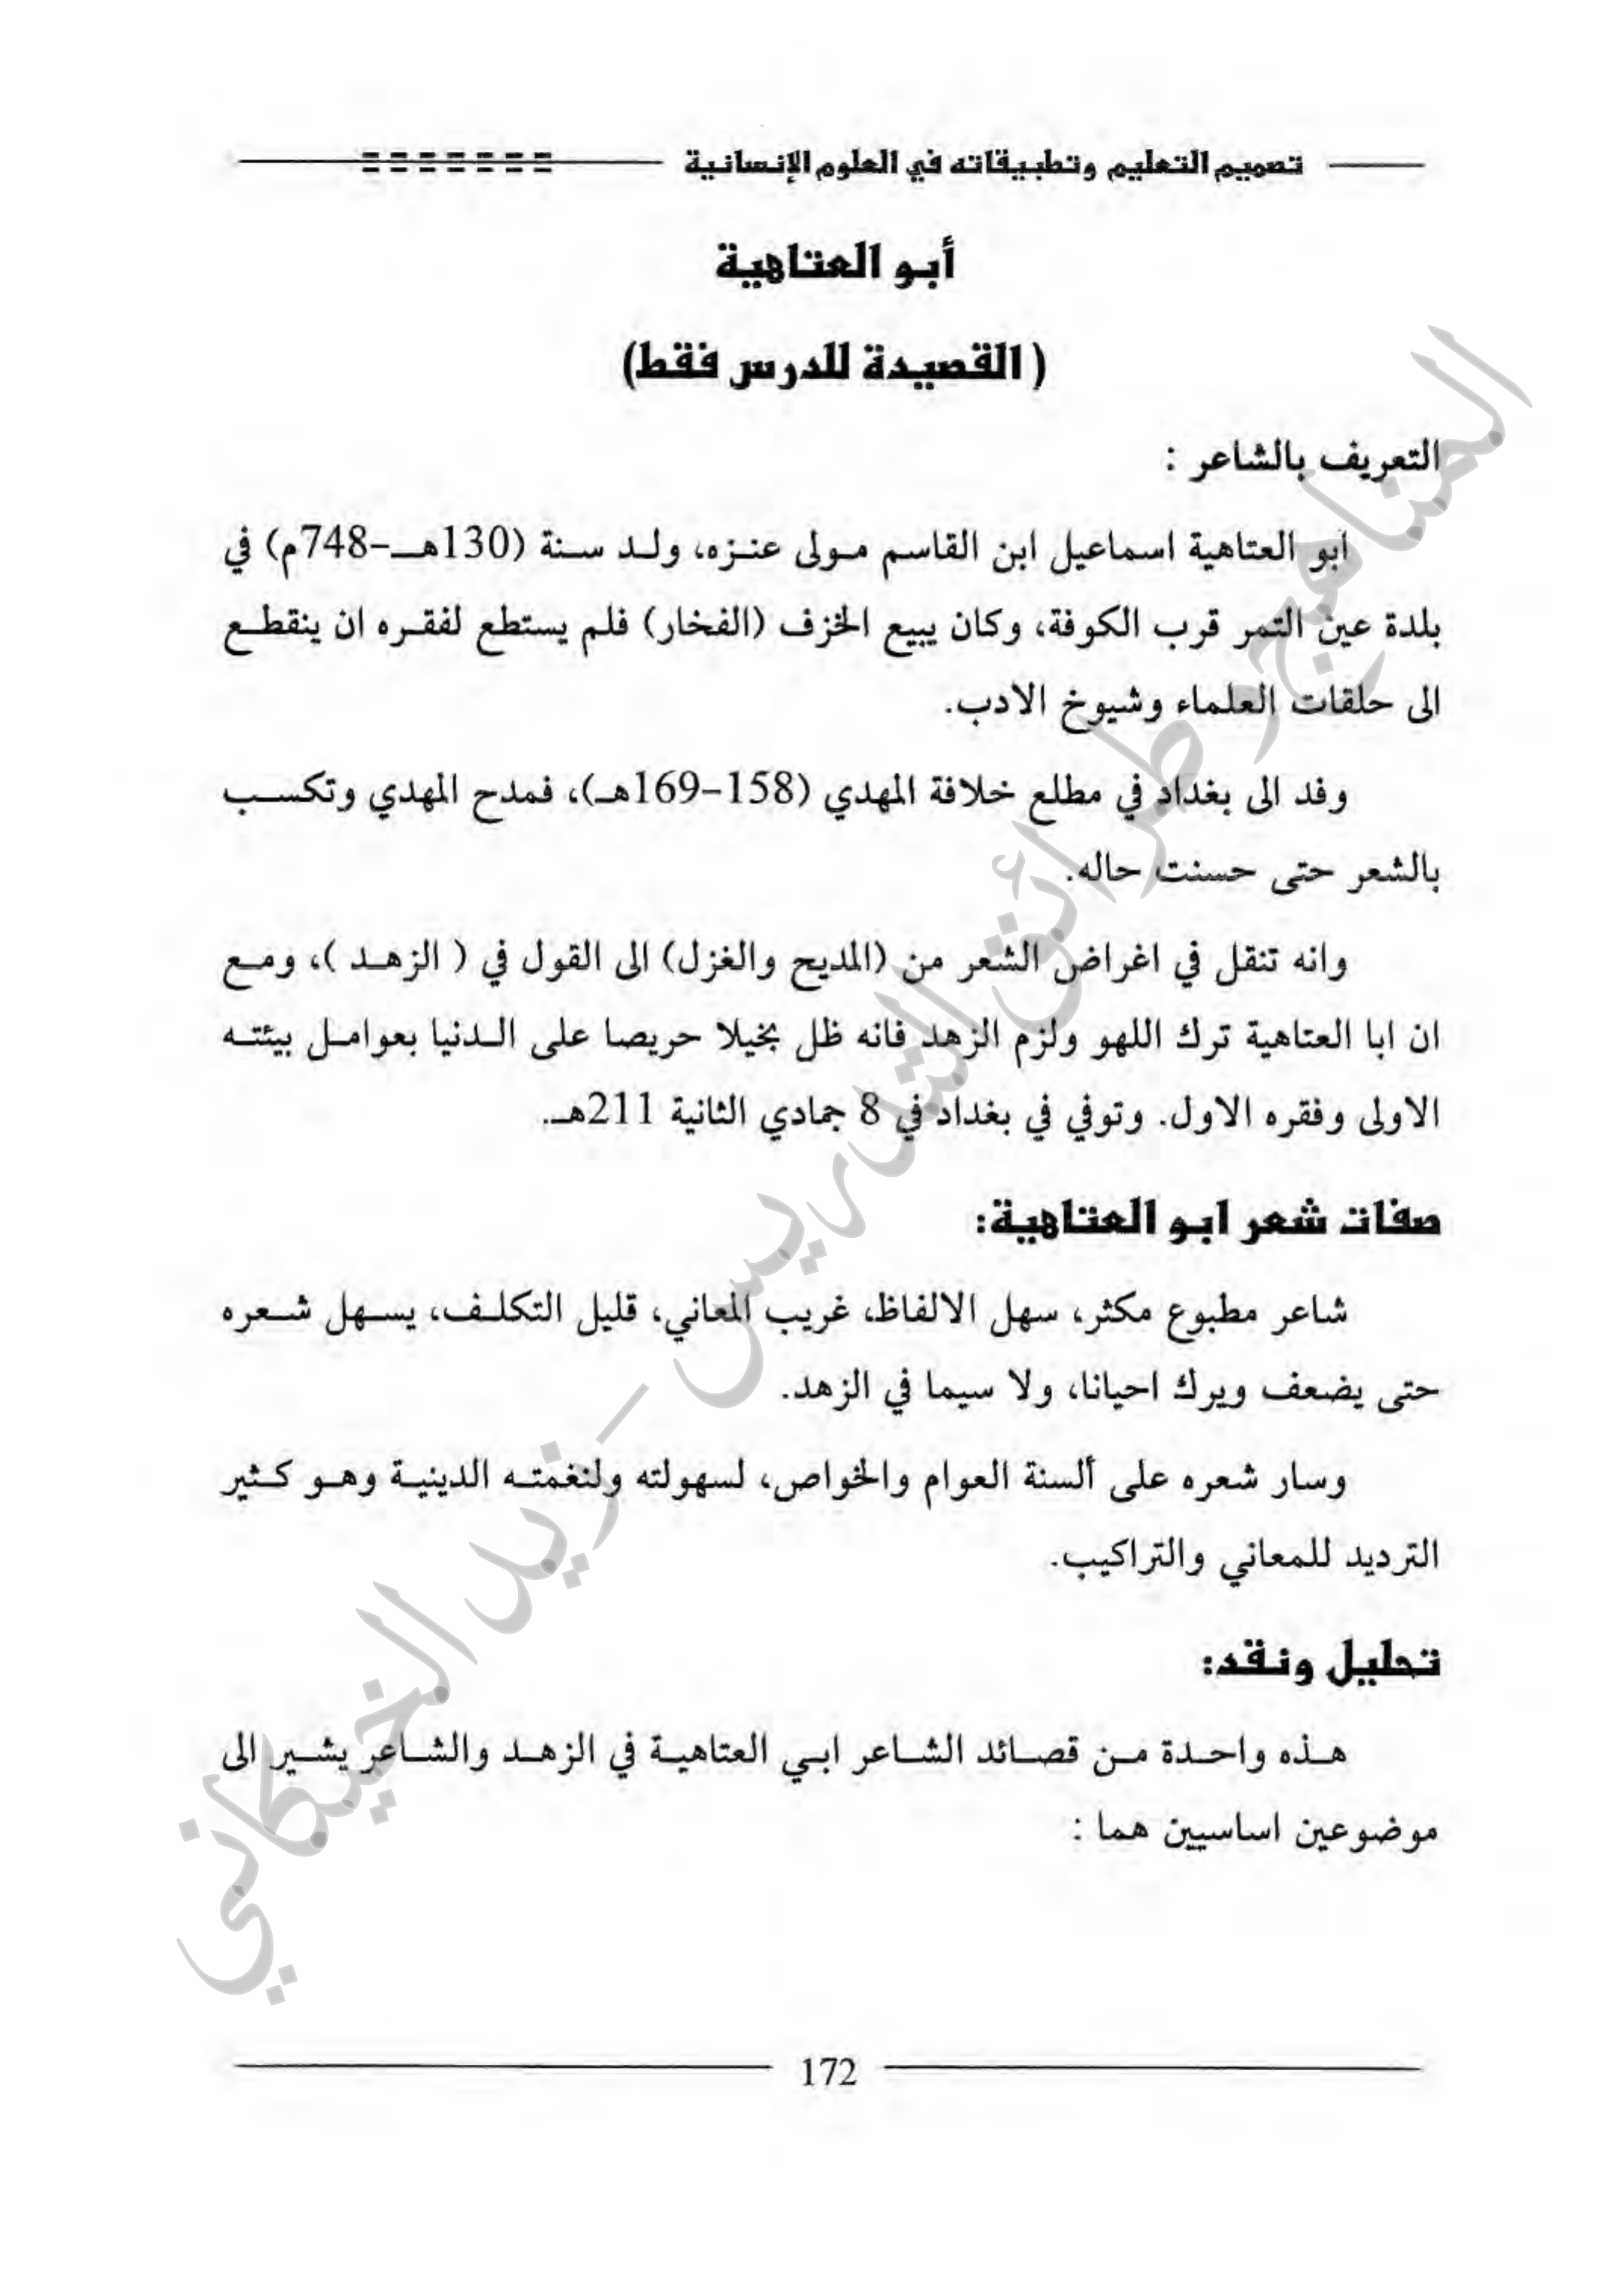 تصميم التعليم وتطبيقاته في العلوم الإنسانية
أبو العتاهية
( القصيدة للدرس فقط)
التعريف بالشاعر :
ابو العتاهية اسماعيل ابن القاسم مولى عنزه، ولد سنة (130هـ-748م) في
بلدة عين التمر قرب الكوفة، وكان يبيع الخزف (الفخار) فلم يستطع لفقره ان ينقطع
الى حلقات العلماء وشيوخ الادب.
وفد الى بغداد في مطلع خلافة المهدي (158-169هـ)، فمدح المهدي وتكسب
بالشعر حتى حسنت حاله.
وانه تنقل في اغراض الشعر من (المديح والغزل) الى القول في ( الزهد )، ومع
ان ابا العتاهية ترك اللهو ولزم الزهد فانه ظل بخيلا حريصا على الدنيا بعوامل بيئته
الاولى وفقره الاول. وتوفي في بغداد في 8 جمادي الثانية 211هـ.
صفات شعر ابو العتاهية:
شاعر مطبوع مكثر، سهل الالفاظ، غريب المعاني، قليل التكلف، يسهل شعره
حتى يضعف ويرك احيانا، ولا سيما في الزهد.
وسار شعره على ألسنة العوام والخواص، لسهولته ولنغمته الدينية وهو كثير
الترديد للمعاني والتراكيب.
تحليل ونقد:
هذه واحدة من قصائد الشاعر ابي العتاهية في الزهد والشاعر يشير الى
موضوعين اساسيين هما :
172
المناهج وطرائق التدريس - زيد الخيكاني